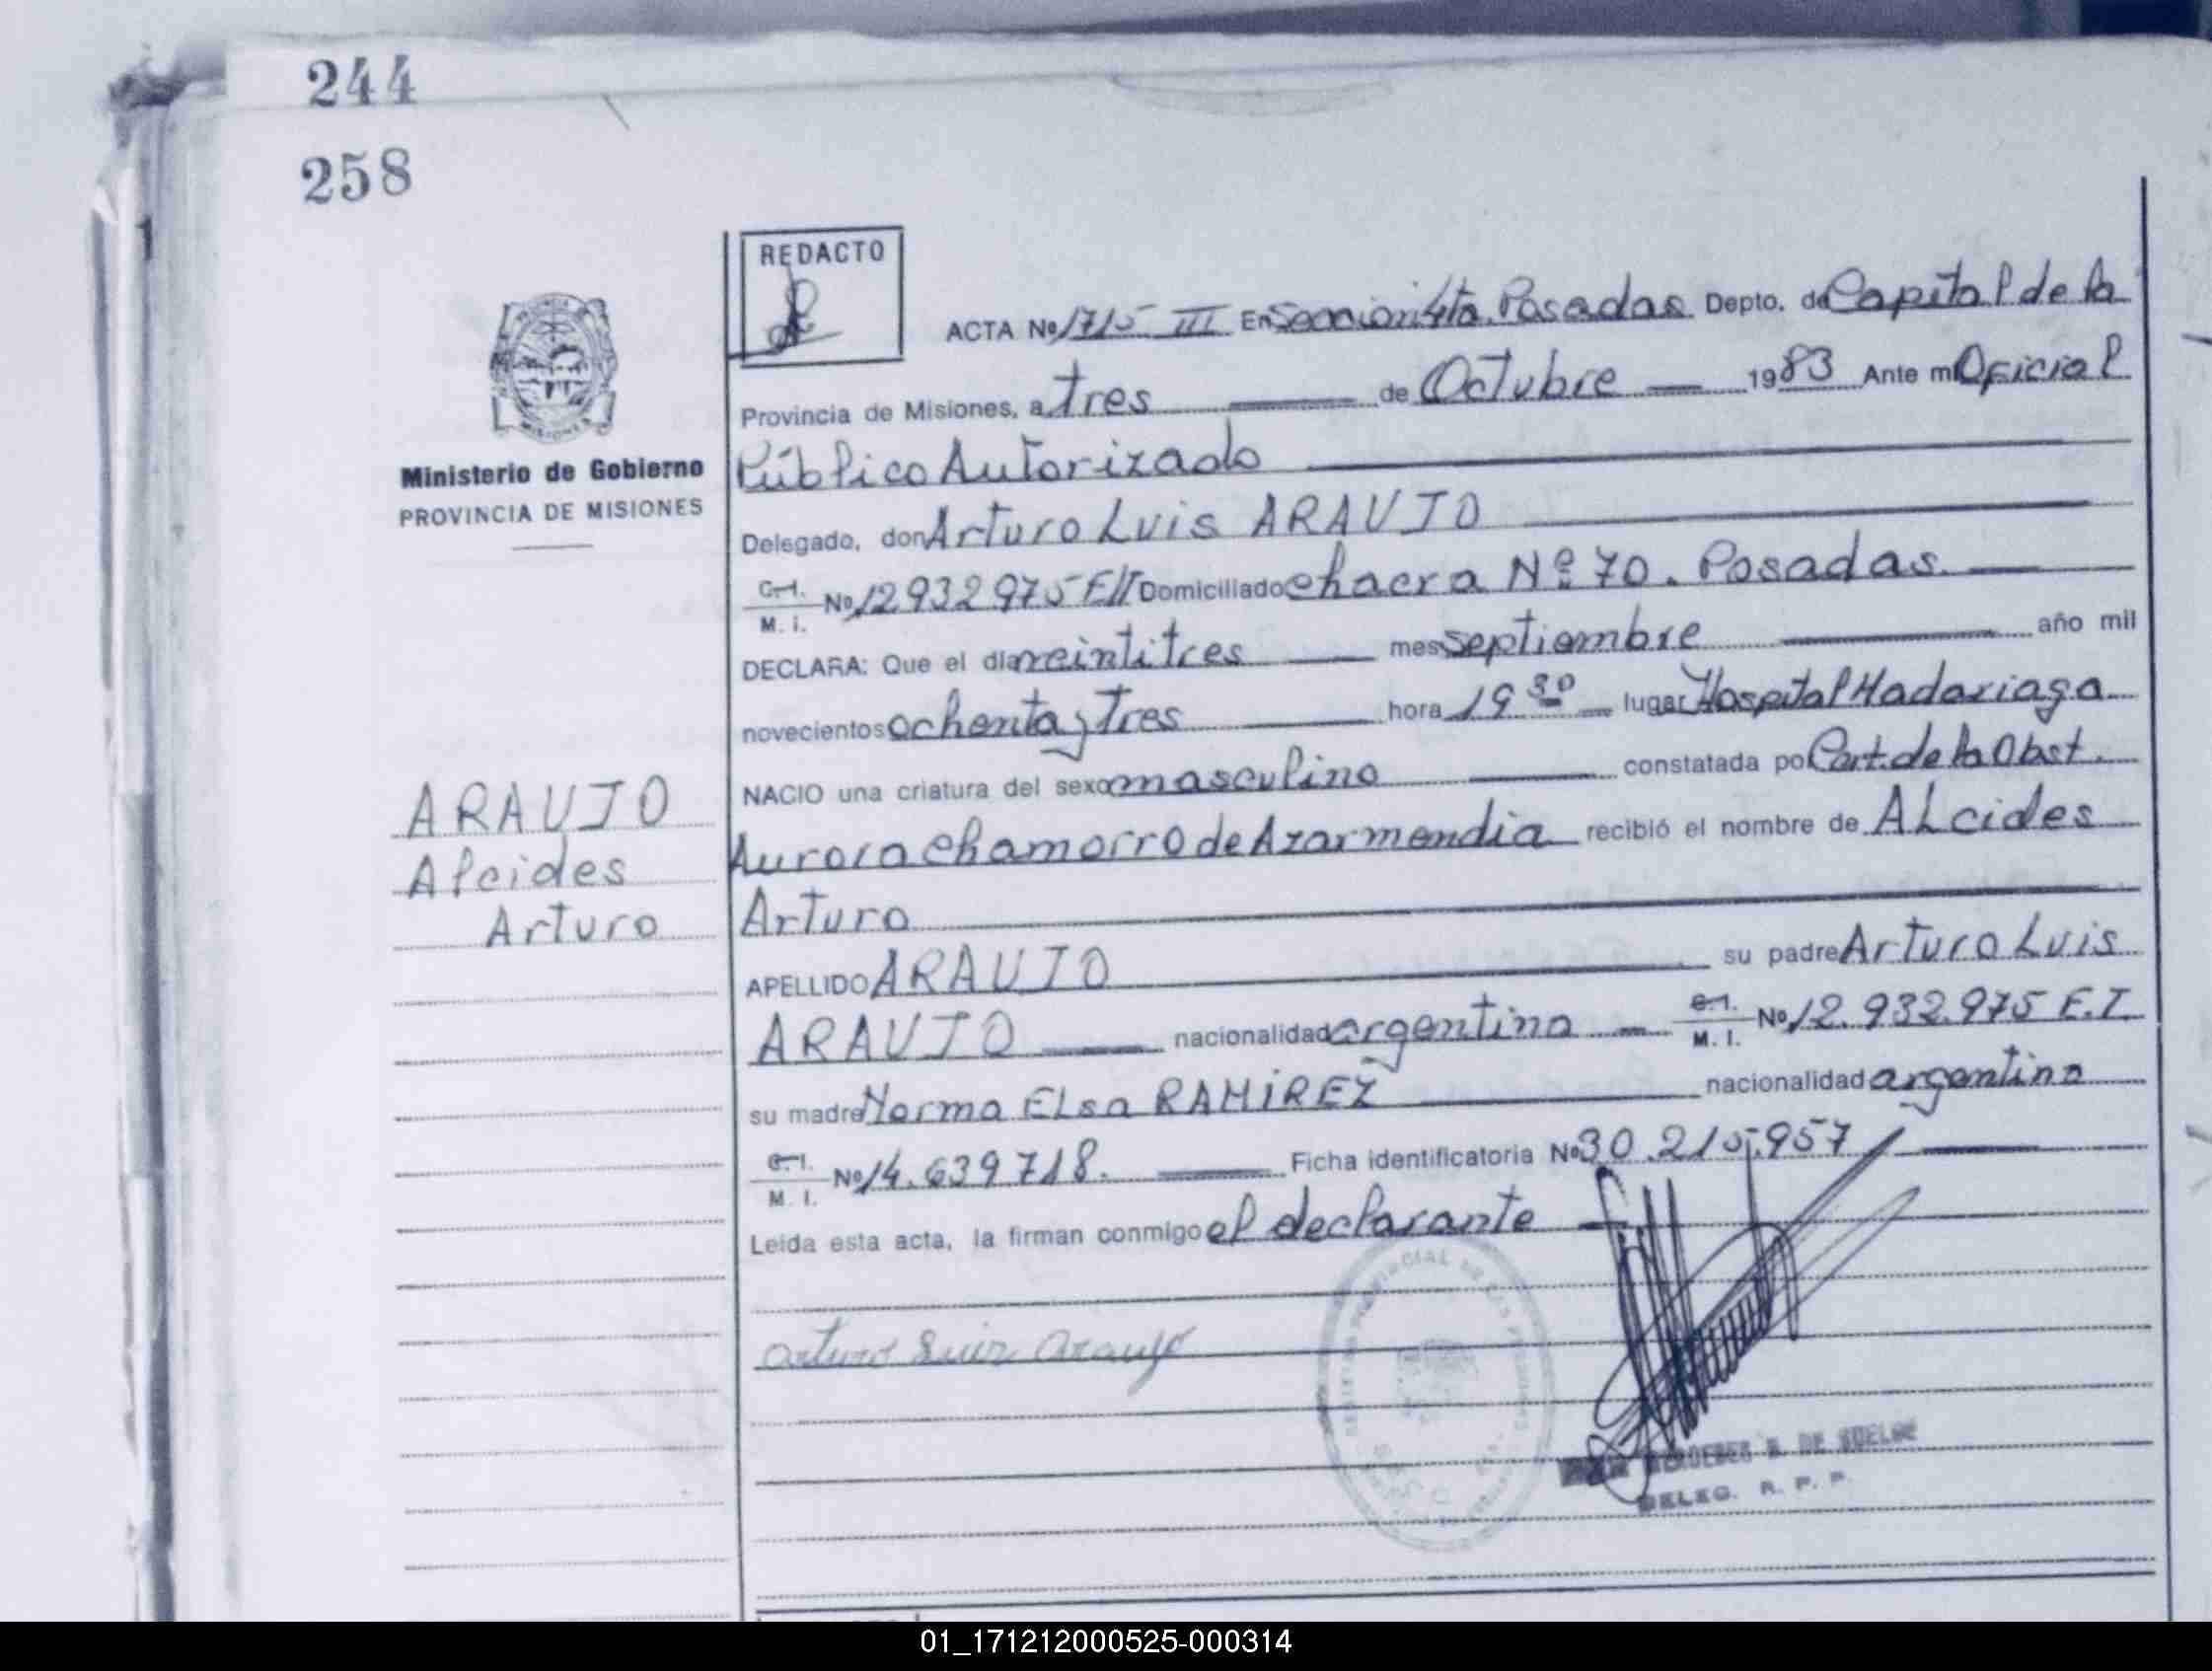 244
258
REDACTO
ACTA Nº 1715 III En Sección 4ta. Posadas Depto. de Capital de la
Provincia de Misiones, a tres de Octubre 1983 Ante mi Oficial
Público Autorizado
Ministerio de Gobierno
PROVINCIA DE MISIONES
Delegado, don Arturo Luis ARAUJO
C.I. M. I. Nº 12932975 EIT Domiciliado chacra Nº 70. Posadas.
DECLARA: Que el día veintitres mes septiembre año mil
novecientos ochenta y Tres hora 19 30 lugar Hospital Madariaga
NACIO una criatura del sexo masculino constatada por Cert. de la Obst.
Aurora Chamorro de Azarmendia recibió el nombre de ALcides
Arturo
ARAUJO
Alcides
Arturo
APELLIDO ARAUJO su padre Arturo Luis
ARAUJO nacionalidad argentino C.I. M. I. Nº 12.932.975 E.T.
su madre Norma ELsa RAMÍREZ nacionalidad argentina
C.I. M. I. Nº 14.639718. Ficha identificatoria Nº 30.215.957
Leída esta acta, la firman conmigo el declarante
Arturo Luis Araujo
DELEG. R. P. P.
01_171212000525-000314